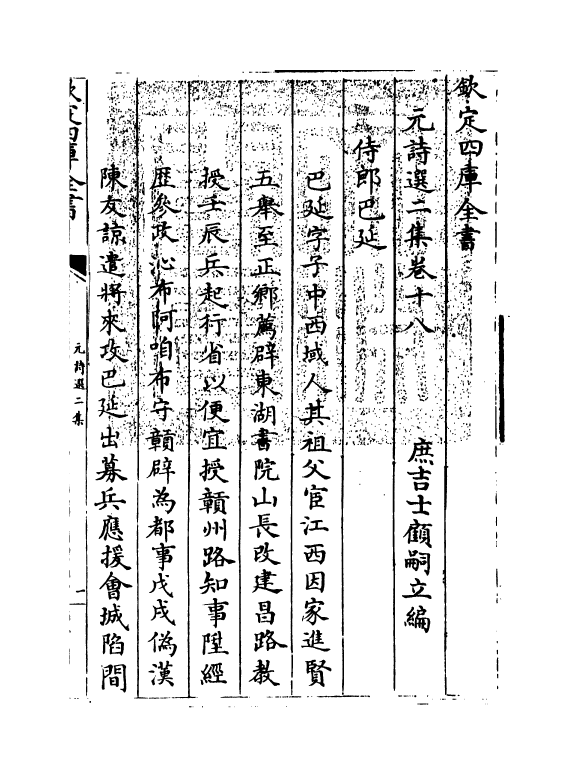 欽定四庫全書
元詩選二集卷十八
庶吉士顧嗣立編
侍郎巴延
巴延字子中西域人其祖父宦江西因家進賢
五舉至正鄉薦辟東湖書院山長改建昌路教
授壬辰兵起行省以便宜授贛州路知事陞經
歷參政沁布阿咱布守贛辟為都事戊戌偽漢
陳友諒遣將來攻巴延出募兵應援會城陷間
欽定四庫全書
元詩選二集
一